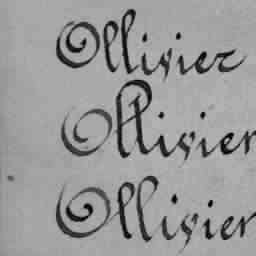 Ollivier
Ollivier
Ollivier